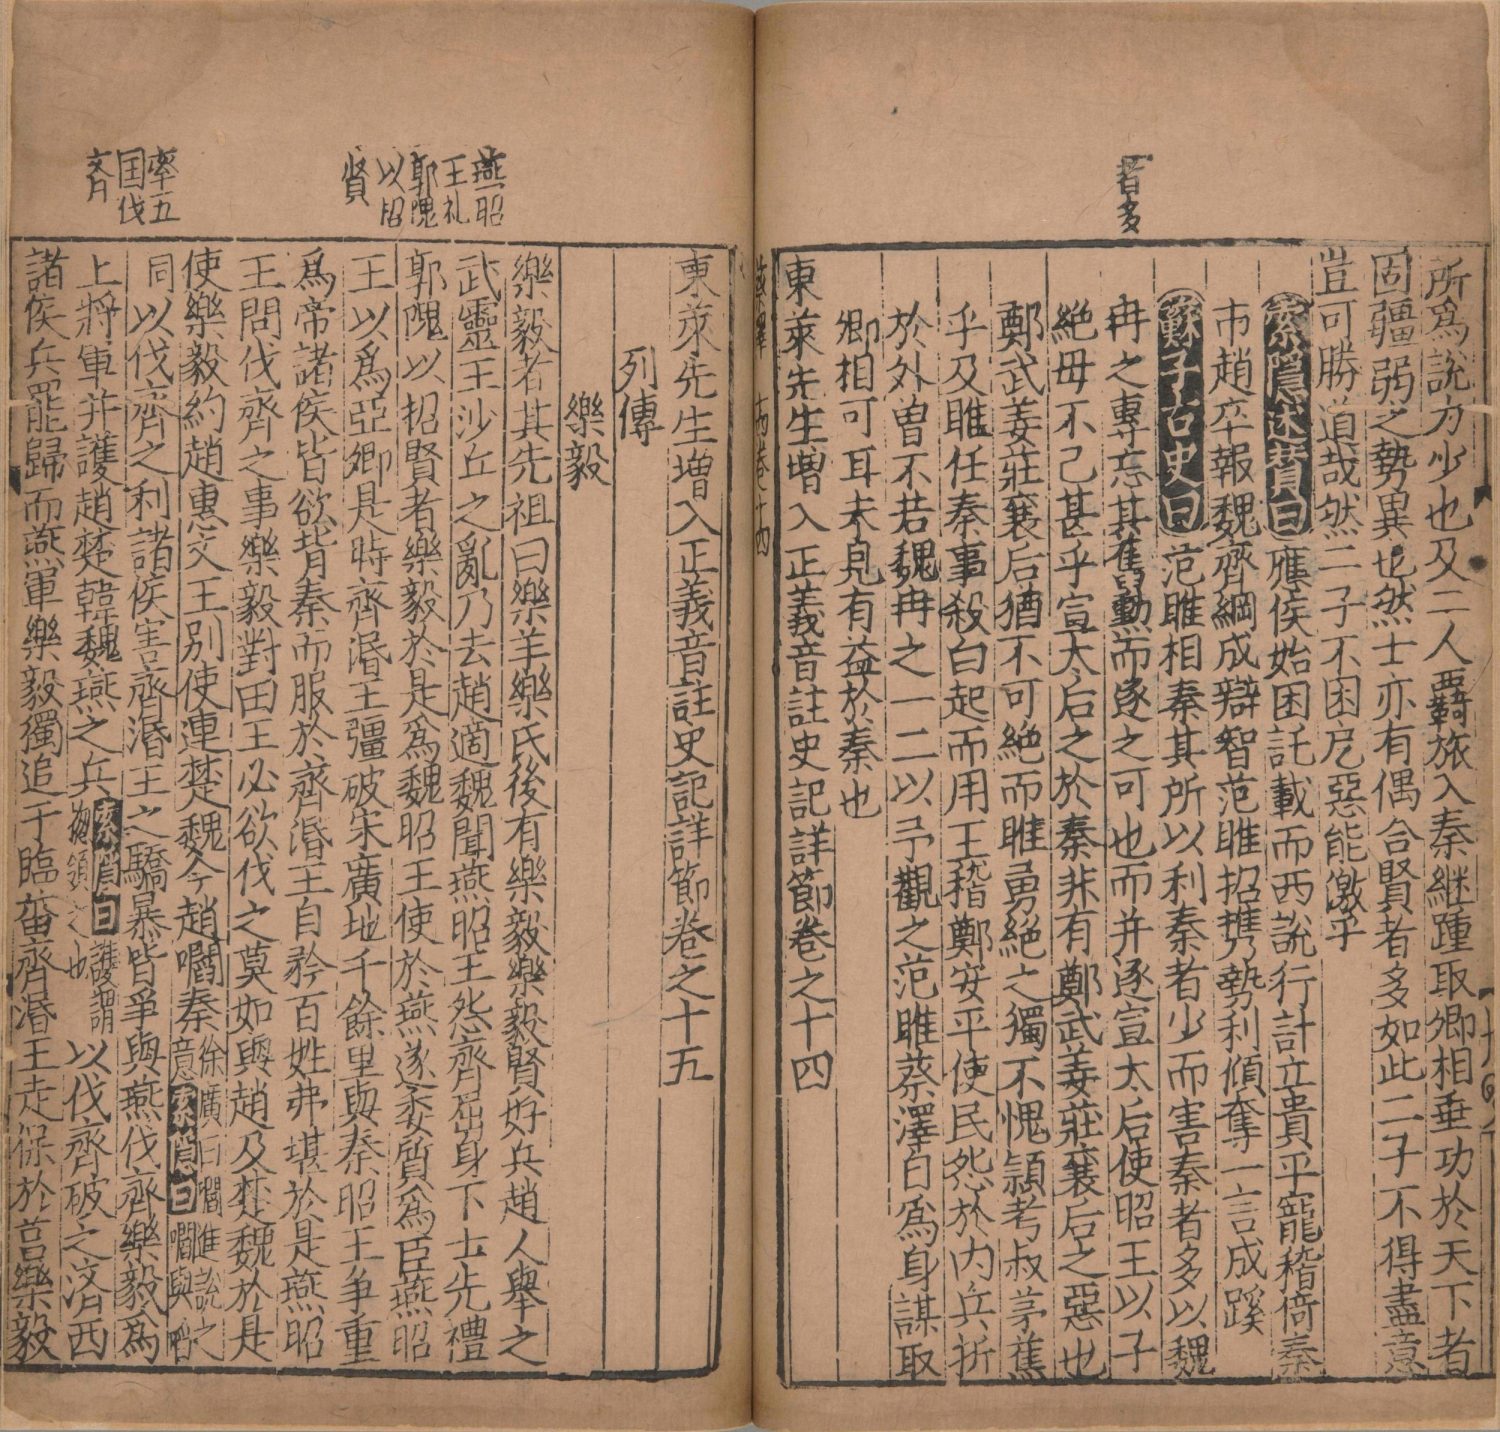 者多
所爲說力少也及二人羇旅入秦繼踵取卿相垂功於天下者
固疆弱之勢異也然士亦有偶合賢者多如此二子不得盡意
豈可勝道哉然二子不困戹惡能激乎
索隱述贊曰應侯始困託載而西說行計立貴平寵稽倚秦
市趙卒報魏齊綱成辯智范雎招携勢利傾奪一言成蹊
蘇子古史曰范雎相秦其所以利秦者少而害秦者多以魏
冉之專忘其舊勳而逐之可也而并逐宣太后使昭王以子
絶母不已甚乎宣太后之於秦非有鄭武姜莊襄后之惡也
鄭武姜莊襄后猶不可絶而雎勇絶之獨不愧潁考叔茅蕉
乎及雎任秦事殺白起而用王稽鄭安平使民怨於内兵折
於外曽不若魏冉之一二以予觀之范雎蔡澤自爲身謀取
卿相可耳未見有益於秦也
東萊先生增入正義音註史記詳節卷之十四
東萊先生增入正義音註史記詳節卷之十五
列傳
樂毅
燕昭
王礼
郭隗
以招
賢
樂毅者其先祖曰樂羊樂氏後有樂毅樂毅賢好兵趙人舉之
武靈王沙丘之亂乃去趙適魏聞燕昭王怨齊屈身下士先禮
郭隗以招賢者樂毅於是爲魏昭王使於燕遂委質爲臣燕昭
王以爲亞卿是時齊湣王彊破宋廣地千餘里與秦昭王爭重
爲帝諸侯皆欲背秦而服於齊湣王自矜百姓弗堪於是燕昭
王問伐齊之事樂毅對曰王必欲伐之莫如與趙及楚魏於是
使樂毅約趙惠文王别使連楚魏令趙嚪秦徐廣曰嚪進說之意索隱曰嚪與啗
同以伐齊之利諸侯害齊湣王之驕暴皆爭與燕伐齊樂毅爲
率五
国伐
齐
上將軍并護趙楚韓魏燕之兵索隱曰護謂揔領之也以伐齊破之濟西
諸侯兵罷歸而燕軍樂毅獨追于臨菑齊湣王走保於莒樂毅